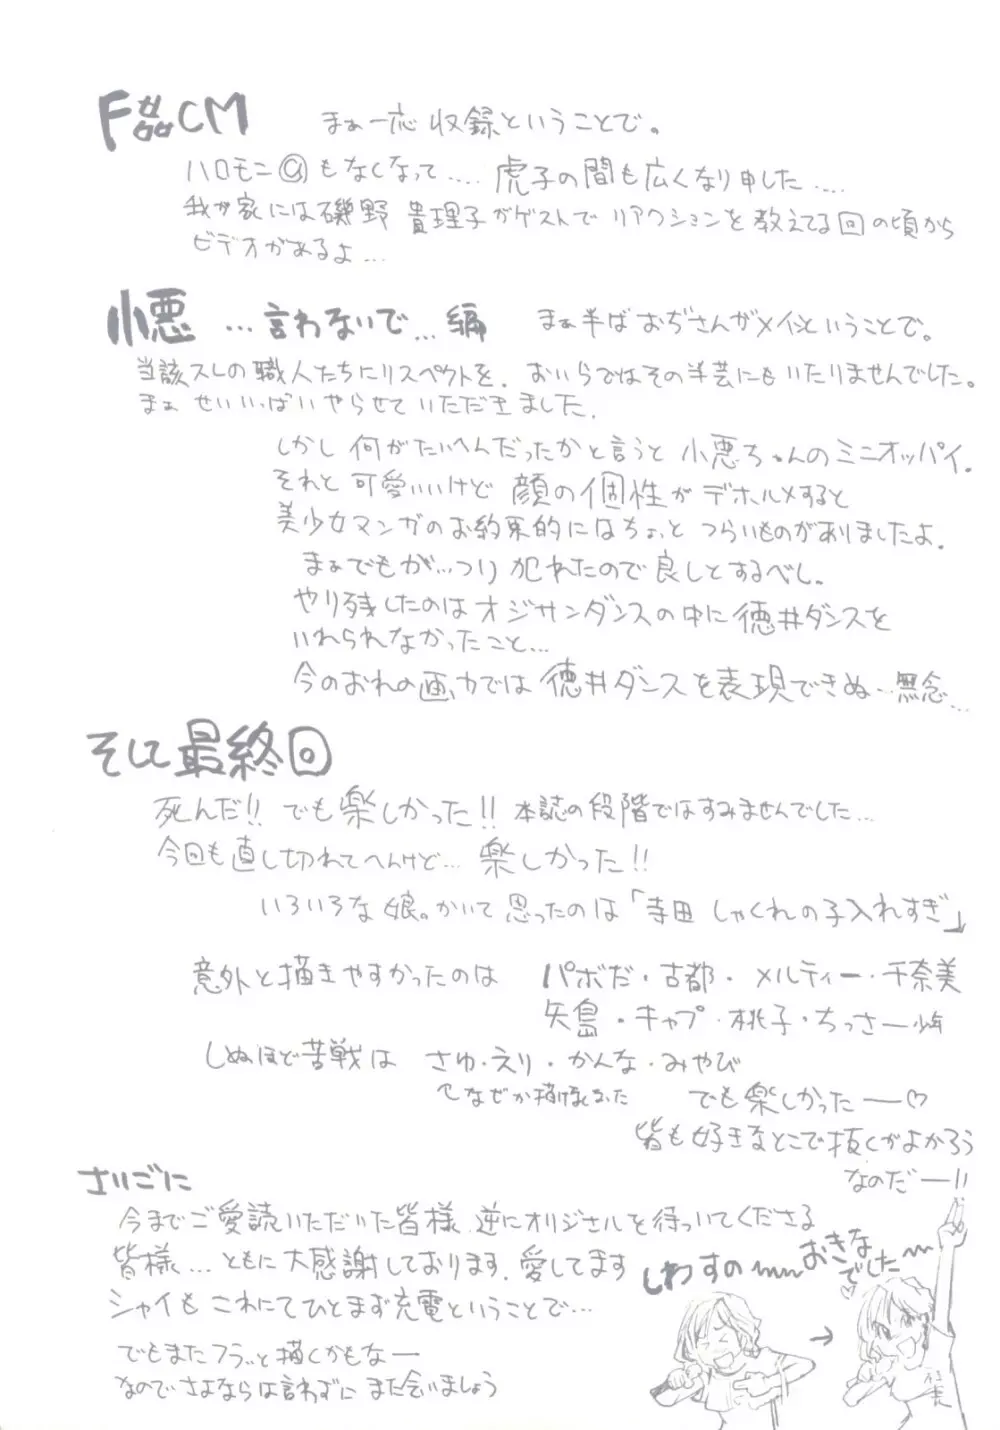 F姦CM まぁ一応収録ということで。
ハロモニ@もなくなって.... 虎子の間も広くなり申した....
我が家には磯野貴理子がゲストでリアクションを教えてる回の頃から
ビデオがあるよ...
小悪 ...言わないで...編 まぁ半ばおぢさんがメインということで。
当該スレの職人たちにリスペクトを。おいらではその半芸にもいたりませんでした。
まぁ せいいっぱいやらせていただきました。
しかし 何がたいへんだったかと言うと 小悪ちゃんのミニオッパイ。
それと 可愛いいけど 顔の個性が デホルメすると
美少女マンガのお約束的にはちょっと つらいものがありましたよ。
まぁでもが...つり 犯れたので良しとするべし。
やり残したのはオジサンダンスの中に徳井ダンスを
いれられなかったこと...
今のおれの画力では 徳井ダンスを表現できぬ...無念...
そして最終回
死んだ!! でも楽しかった!! 本誌の段階ではすみませんでした...
今回も直し切れてへんけど... 楽しかった!!
いろいろな娘。かいて思ったのは「寺田 しゃくれの子入れすぎ」
意外と描きやすかったのは パボだ・古都・メルティー・千奈美
矢島・キャプ・桃子・ちっさー少年
しぬほど苦戦は さゆ・えり・かんな・みやび
なぜか
でも楽しかったー♡
皆も好きなとこで抜くがよかろう
なのだー!!
さいごに
今までご愛読いただいた皆様 逆にオリジナルを待っていてくださる
皆様...ともに大感謝しております。愛してます
シャイも これにてひとまず充電ということで...
でもまたフラッと描くかもなー
なのでさよならは言わずに また会いましょう
しわすの〜 おきな
でした〜